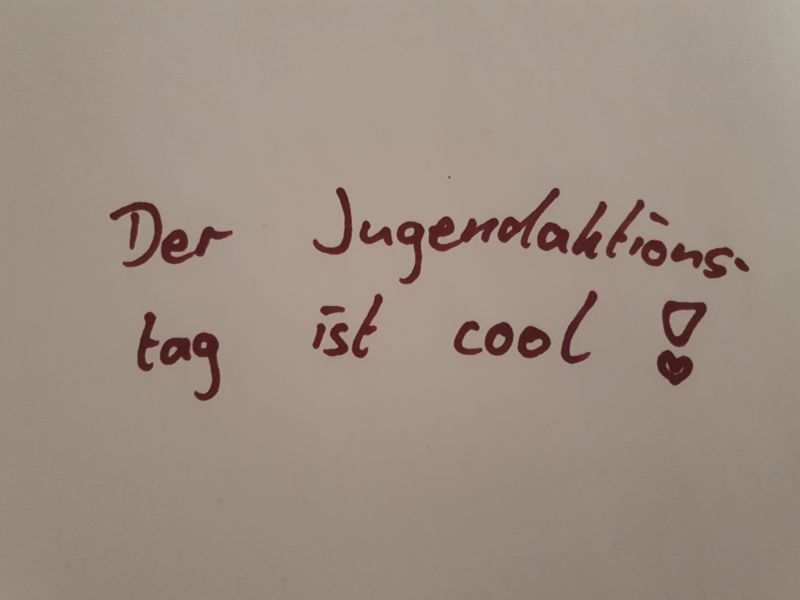 Der Jugendaktions-
tag ist cool!